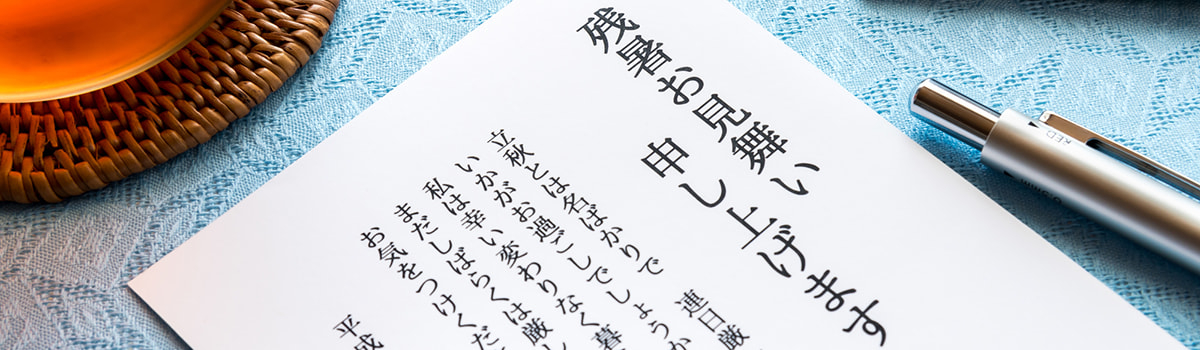 残暑お見舞い
申し上げます
立秋とは名ばかりで 連日厳
いかがお過ごしでしょうか
私は幸い変わりなく暮
まだしばらくは厳し
お気をつけくだ
平成
RED